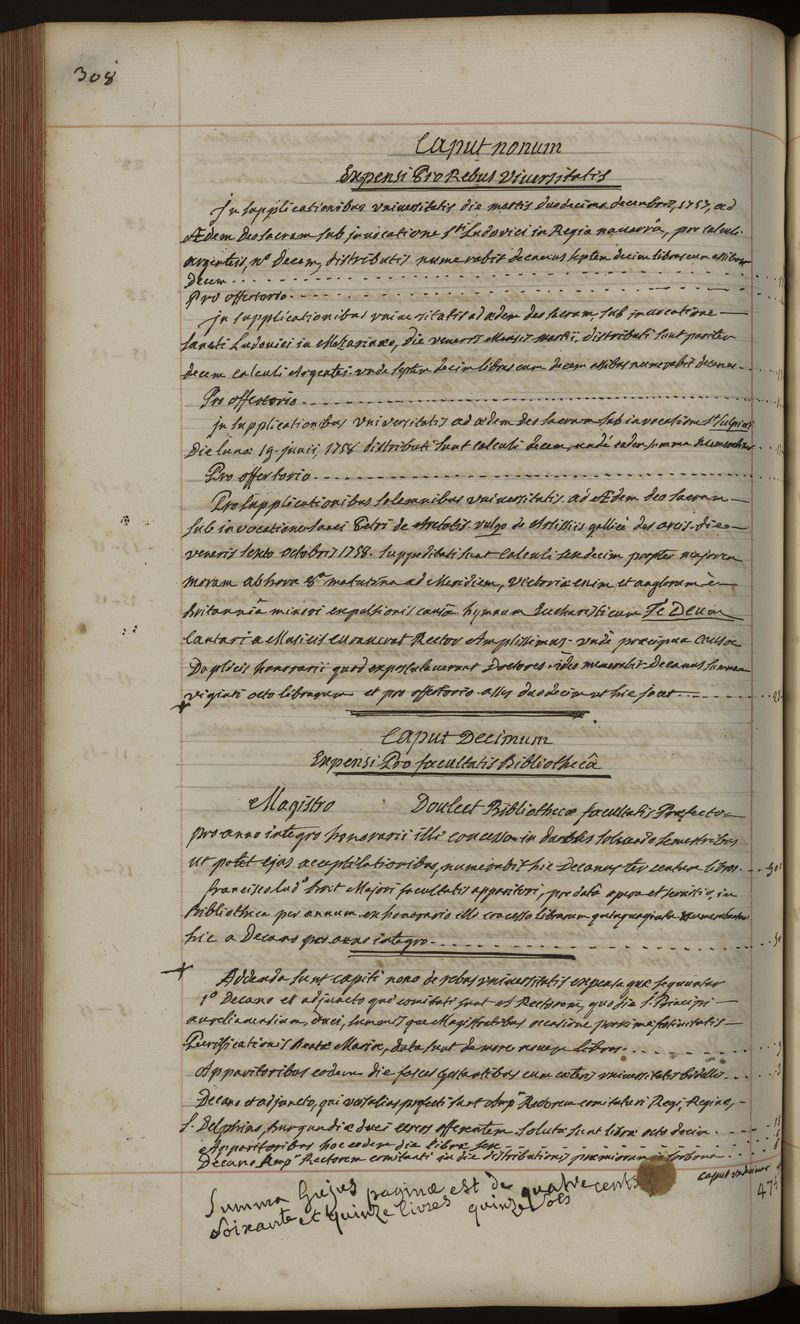 308
Caput nonum
Expensi Pro Rebus Universitatis
In supplicationibus universitatis die martis duodecima decembris, 1757, ad
Ædem deo sacram sub invocatione Sti Ludovici in Regia navarra, pro calculi
argenteis, no decem, distributis numerabit decanus septem decim libras cum assibus
Decem
Pro offertorio
In supplicationibus universitatis ad ædem deo sacram, sub invocatione
Sancti Ludovici in Mazarinæo, die veneris Mensis martii, distributi sunt pariter
decem calculi Argentei unde septem decim libras cum decem assibus numerabit decanus
Pro offertorio
In supplicationibus Universitatis ad ædem deo sacram sub invocatione Sti Sulpicii
Die lunæ 19. junii, 1758 distributi sunt calculi decem, undè eadem summa
Pro offertorio
Pro supplicationibus solemnibus universitatis ad Ædem deo sacram
sub invocatione sancti Petri de vulgo de gallicè des arcis. die
veneris sexto octobris 1758. suppeditati sunt calculi sexdecim propter majorem
moram ab hora 8a matutina ad Meridiem, victoriæ enim et anglorum è
Britannia minori expulsionis causâ hymnum Eucharisticum Te Deum
Cantari a Musicis curaverat Rector Amplissimus. unde præcipua causa
Duplicis honorarii quod expostulaverunt Doctores. ideo numerabit Decanus summam
viginti octo librarum et pro offertorio asses duodecim ut hic jacet
Caput Decimum
Expensi Pro facultatis Bibliothecâ
Magistro Doulcet Bibliothecæ facultatis Præfecto
pro anno integro honorarii illi concesso in duobus solvendo semestribus
ut patet ejus acceptilationibus, numerabit hic Decanus ter centum libras. 300
francisco lud. Majori facultatis apparitori, pro datâ opera et servitio, in
Bibliotheca per annum ex honorario illi concesso librarum quinquaginta
hic a Decano pro anno integro
Addenda sunt capiti nono de rebus universitatis expensa quæ sequuntur
1o Decano et adjuncto qui comitati sunt Rectorem, quo die S. Principi
aurelianensium, duci, summisque Magistratibus occasione proxima festivitatis
Purificationis Beatæ Mariæ, data sunt de more novem libræ
Apparitoribus eodem die fasces gestantibus cum cæteris universitatis bidellis
Decano et adjuncto, qui versalias profecti sunt Ampm Rectorem comitaturi Regi, Reginæ,
S. Delphino, burgundiæ duci cereos offerentem solutæ sunt libræ octodecim
Apparitoribus hoc eodem die libræ sex
Decano Ampm Rectorem comitanti in die distributionis præmiorum in sorbona
Caput undecimum
Summa hujus paginæ est de quatre cents 475
soixante et quinze livres quinze sols